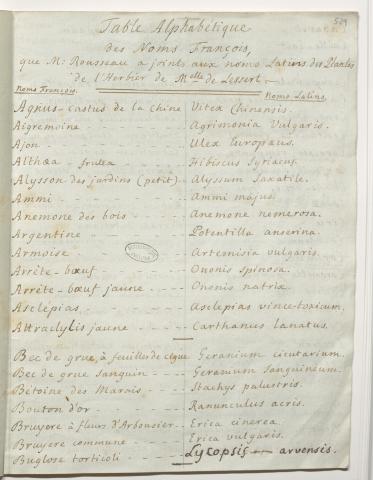 529
Table Alphabétique
des Noms François,
que M: Rousseau a joints aux noms Latins des Plantes
de l'Herbier de Melle de Lessert.
Noms François. Noms Latins.
Agnus-castus de la Chine Vitex Chinensis.
Aigremoine Agrimonia Vulgaris.
Ajon Ulex Europæus.
Althæa frutex Hibiscus Syriacus.
Alysson des jardins (petit) Alyssum Saxatile.
Ammi Ammi majus.
Anemone des bois Anemone nemerosa.
Argentine Potentilla anserina.
Armoise Artemisia vulgaris.
Arrête-bœuf Ononis spinosa.
Arrête-bœuf jaune Ononis natrix.
Asclépias Asclepias vince-toxicum.
Attractylis jaune Carthamus Lanatus.
Bec de grue, à feuilles de cigue Geranium cicutarium.
Bec de grue Sanguin Geranium Sanguineum.
Bétoine des Marais Stachys palustris.
Bouton d'or Ranunculus acris.
Bruyere à fleurs d'Arbousier Erica cinerea.
Bruyere commune Erica vulgaris.
Buglose torticoli Lycopsis arvensis.